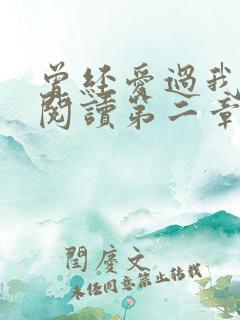 曾經愛過我
閱讀第二章
閆慶文
未经同意禁止转载